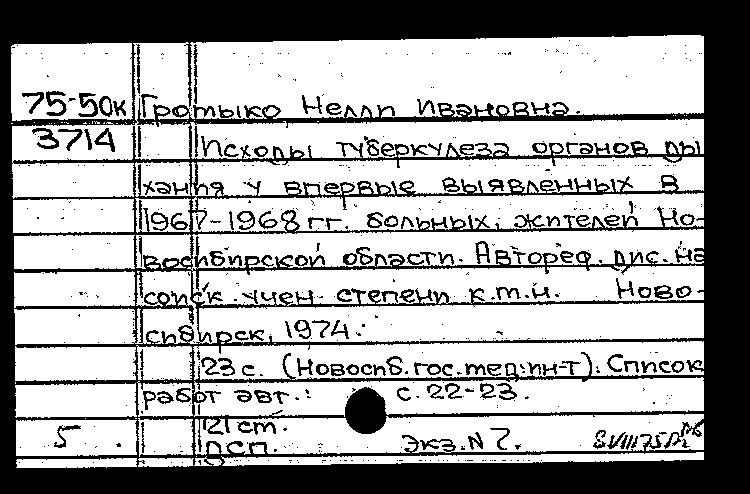 75-50к Громыко Нелли Ивановна.
3714 Исходы туберкулеза органов ды
хания у впервые выявленных в
1967-1968 гг. больных, жителей Но-
восибирской области. Автореф. дис. на
соиск. учен. степени к.м.н. Ново-
сибирск, 1974.
23 с. (Новосиб. гос. мед. ин-т). Список
работ авт.: с. 22-23.
121 ст.
5 ДСП. Экз. N 7.